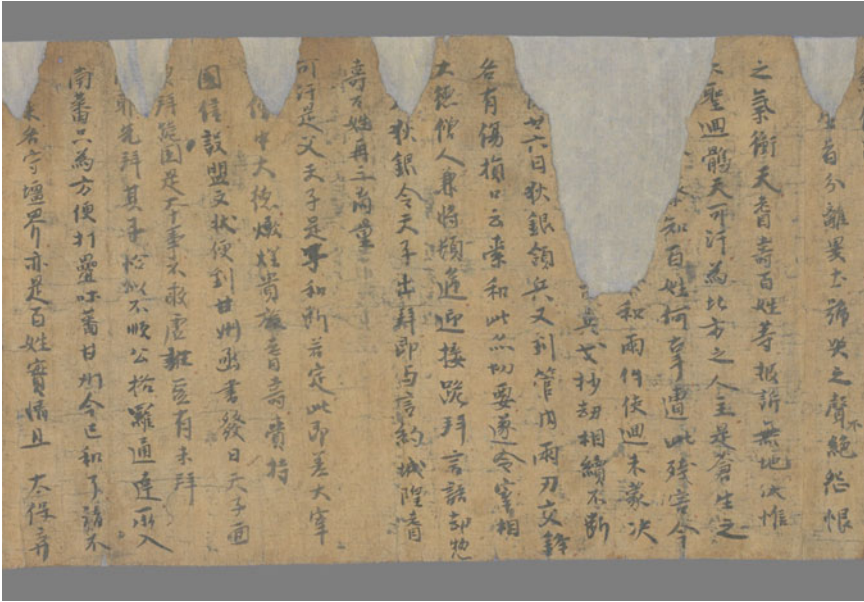 生首分離異土號哭之聲不絕怨恨
之氣衝天耆壽百姓等披訴無地伏惟
大聖迴鶻天可汗為北方之人主是蒼生之
察知百姓何辜遭此殘害今
和兩件使迴未蒙決
兵戈抄劫相續不斷
月廿六日狄銀領兵又到管內兩刃交鋒
各有傷損口云索和此亦切要遂令宰相
大德僧人兼將頓遞迎接跪拜言語却惣
狄銀令天子出拜即与言約城隍耆
壽百姓再三商量
可汗是父天子是子和斷若定此即差大宰
僧中大德燉煌貴族耆壽賫持
國信設盟文狀便到甘州函書發日天子面
東拜跪固是本事不敢虛誑豈有未拜
耶先拜其子恰似不順公格羅通達所入
南蕃只為方便打疊吐蕃甘州今已和了請不
來各守壃界亦是百姓實情且 太保弃